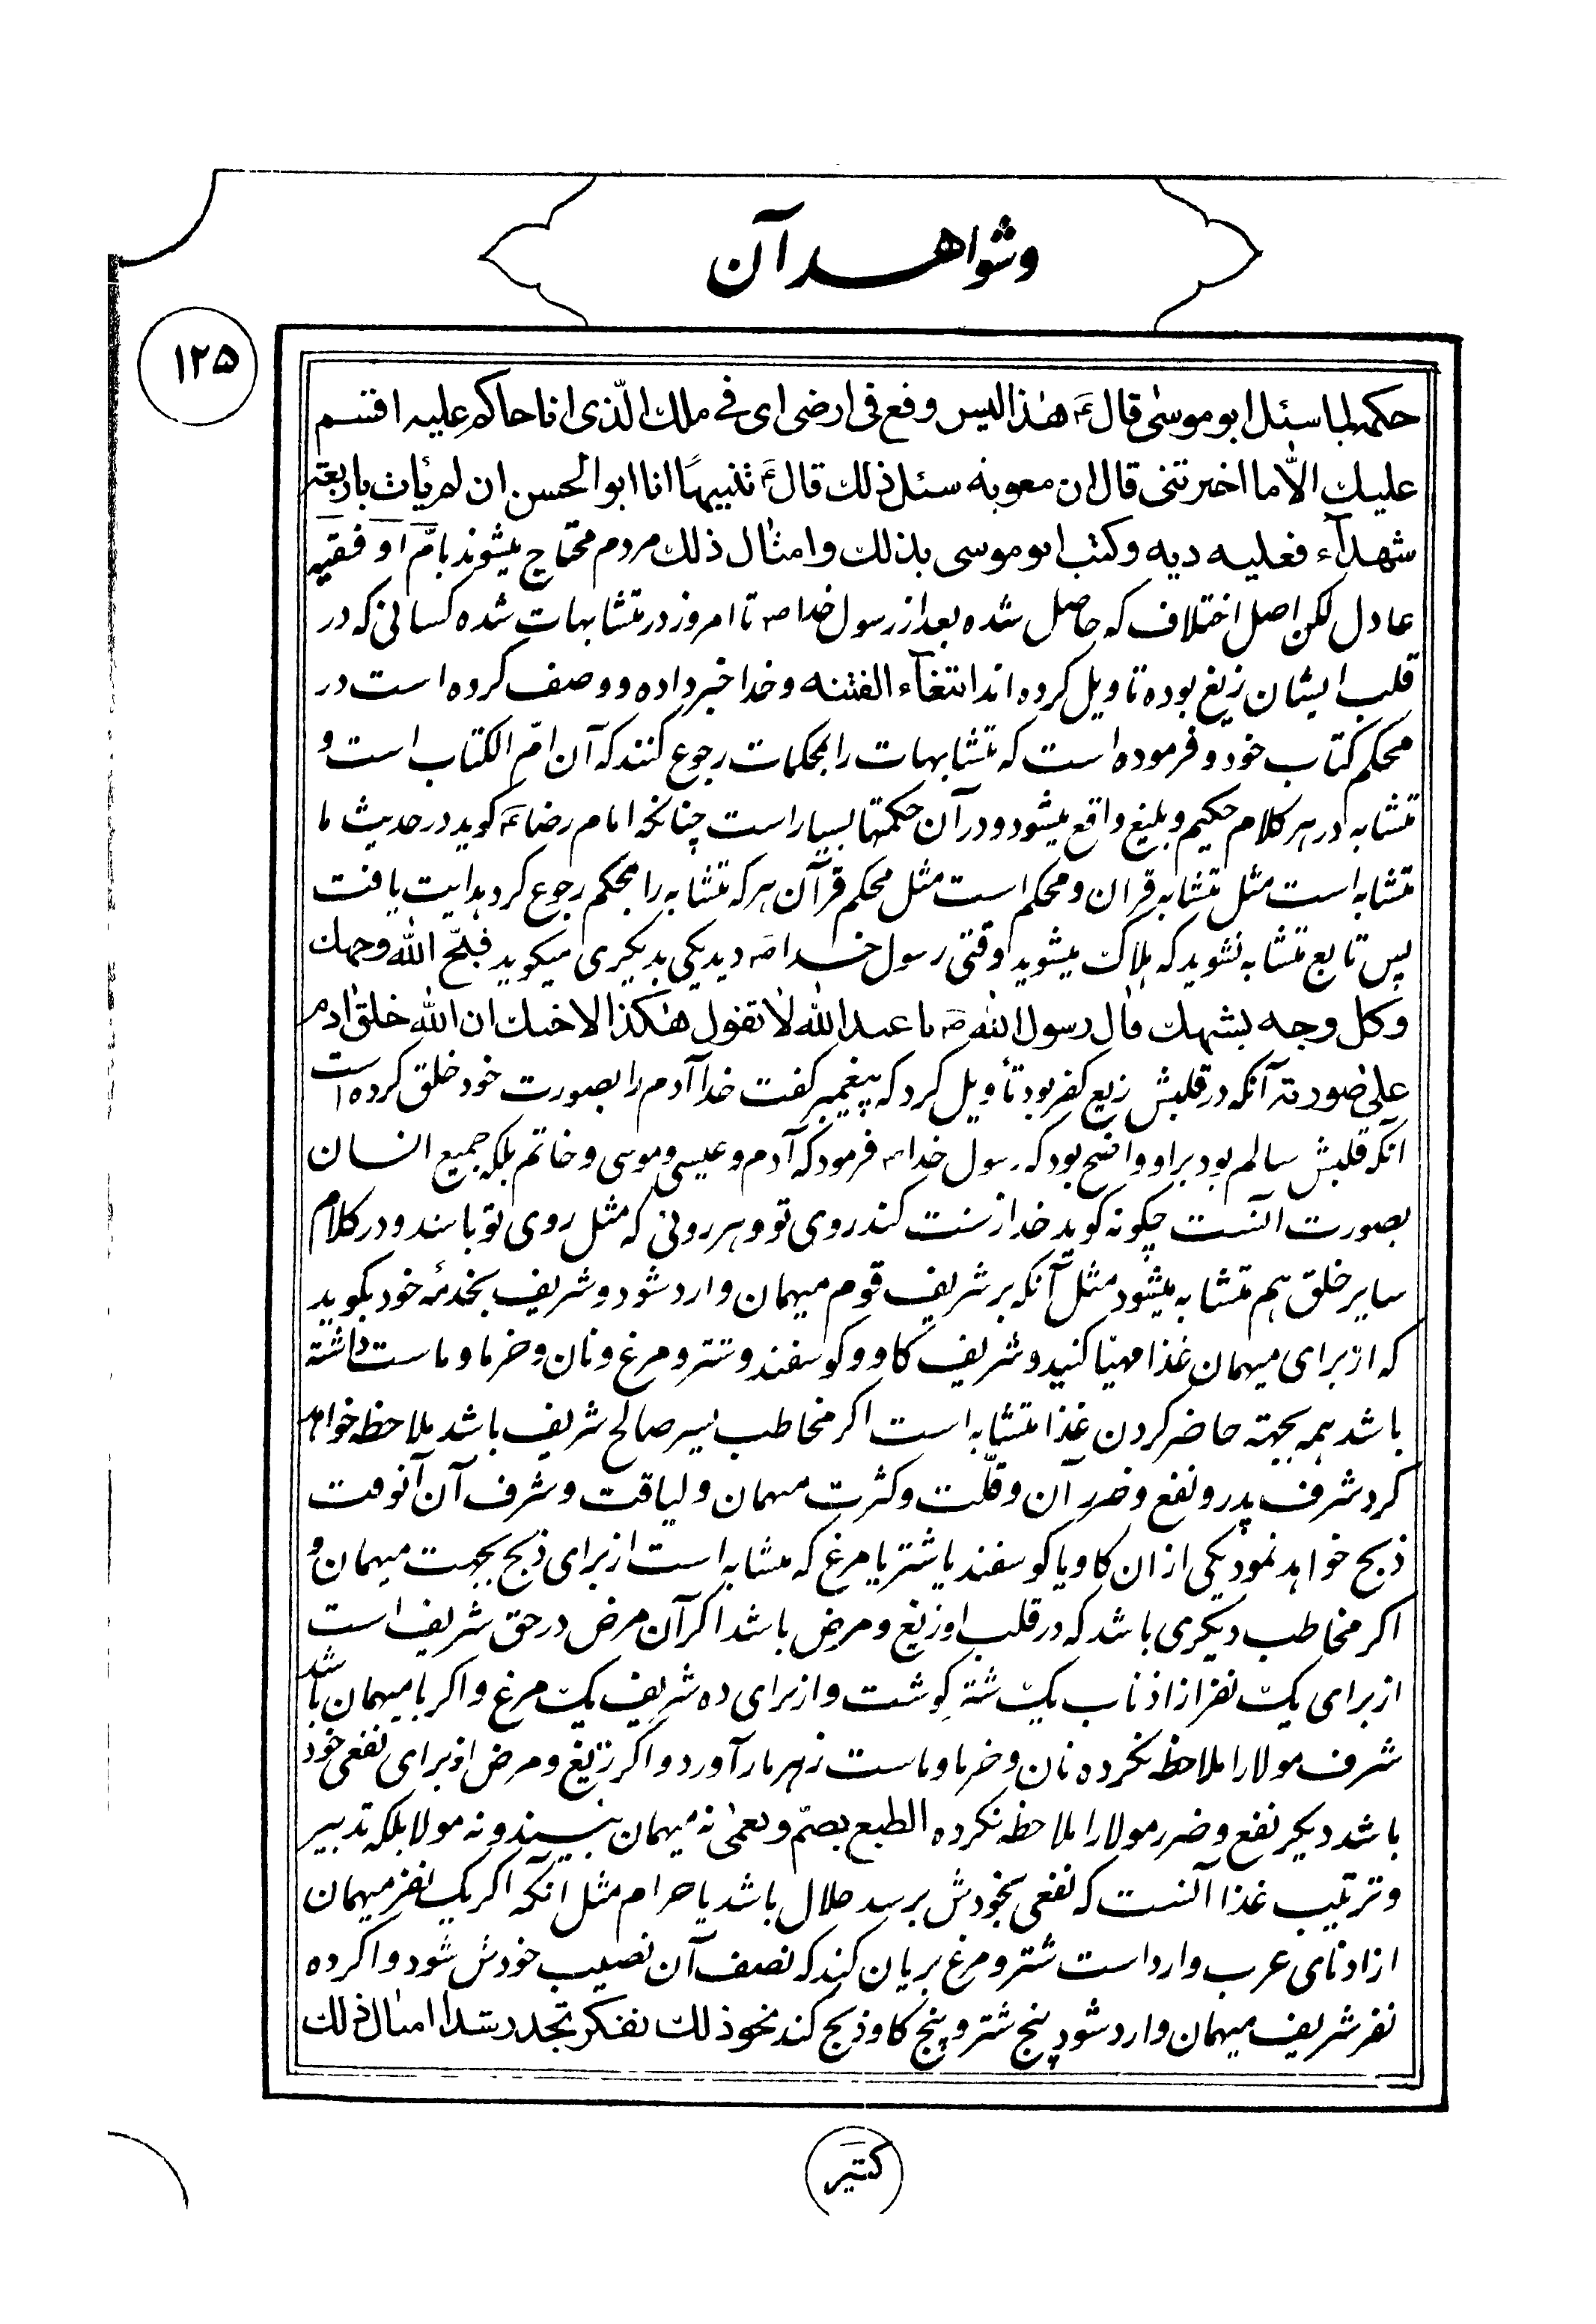 وشواهد آن
۱۲۵
حکمه لما سئل ابو موسی قال ع هذا لیس وقع فی ارضی ای فی ملک الّذی انا حاکم علیه اقسم
علیک الاّ ما اخبرتنی قال ان معویه سئل ذلک قال ع تنبیهاً انا ابو الحسن ان لم یأت باربعة
شهدآء فعلیه دیه وکتب ابو موسی بذلک وامثال ذلک مردم محتاج میشوند بامام او فقیه
عادل لکن اصل اختلاف که حاصل شده بعد از رسول خدا ص تا امروز در متشابهات شده کسانی که در
قلب ایشان زیغ بوده تاویل کرده اند ابتغآء الفتنه وخدا خبر داده و وصف کرده است در
محکم کتاب خود و فرموده است که متشابهات را بمحکمات رجوع کنند که آن امّ الکتاب است و
متشابه در هر کلام حکیم و بلیغ واقع میشود و در آن حکمتها بسیار است چنانکه امام رضا ع کوید در حدیث ما
متشابه است مثل متشابه قران و محکم است مثل محکم قرآن هر که متشابه را بمحکم رجوع کرد هدایت یافت
پس تابع متشابه نشوید که هلاک میشوید وقتی رسول خدا ص دید یکی بدیکری میکوید قبّح الله وجهک
وکل وجه یشبهک قال رسول الله ص یا عبد الله لا تقول هکذا لاخیک ان الله خلق ادم
علی صورته آنکه در قلبش زیغ کفر بود تأویل کرد که پیغمبر کفت خدا آدم را بصورت خود خلق کرده است
آنکه قلبش سالم بود براو واضح بود که رسول خدا ص فرمود که آدم و عیسی و موسی و خاتم بلکه جمیع انسان
بصورت آنست چکونه کوید خدا زشت کند روی تو و هر روئی که مثل روی تو باشد و در کلام
سایر خلق هم متشابه میشود مثل آنکه بر شریف قوم میهمان وارد شود و شریف بخدمۀ خود بکوید
که از برای میهمان غذا مهیّا کنید و شریف کاو و کوسفند و شتر و مرغ و نان و خرما و ماست داشته
باشد همه بجهته حاضر کردن غذا متشابه است اکر مخاطب پسر صالح شریف باشد ملاحظه خواهد
کرد شرف پدر و نفع و ضرر آن و قلّت و کثرت میهمان و لیاقت و شرف آن آنوقت
ذبح خواهد نمود یکی از ان کاو یا کوسفند یا شتر یا مرغ که متشابه است از برای ذبح بجهت میهمان و
اکر مخاطب دیکری باشد که در قلب او زیغ و مرض باشد اکر آن مرض در حق شریف است
از برای یک نفر از اذناب یک شقه کوشت و از برای ده شریف یک مرغ و اکر با میهمان باشد
شرف مولا را ملاحظه نکرده نان و خرما و ماست زهر مار آورد و اکر زیغ و مرض او برای نفعی خود
باشد دیکر نفع و ضرر مولا را ملاحظه نکرده الطبع یصمّ و یعمی نه میهمان بیند و نه مولا بلکه تدبیر
و ترتیب غذا آنست که نفعی بخودش برسد حلال باشد یا حرام مثل انکه اکر یک نفر میهمان
از ادنای عرب وارد است شتر و مرغ بریان کند که نصف آن نصیب خودش شود و اکر ده
نفر شریف میهمان وارد شود پنج شتر و پنج کاو ذبح کند نحو ذلک تفکر تجد رشدا امثال ذلک
کثیر